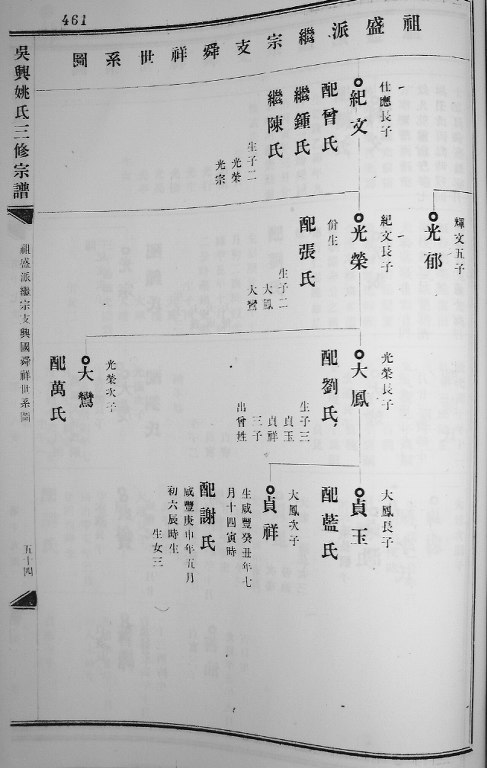 461
祖盛派繼宗支舜祥世系圖
輝文五子
光郁
仕應長子
紀文
配曾氏
繼鍾氏
繼陳氏
生子二
光榮
光宗
紀文長子
光榮
份生
配張氏
生子二
大鳳
大鸞
光榮長子
大鳳
配劉氏
生子三
貞玉
貞祥
三子
出曾姓
光榮次子
大鸞
配萬氏
大鳳長子
貞玉
配藍氏
大鳳次子
貞祥
生咸豐癸丑年七
月十四寅時
配謝氏
咸豐庚申年五月
初六辰時生
生女三
吳興姚氏三修宗譜
祖盛派繼宗支興國舜祥世系圖
五十四